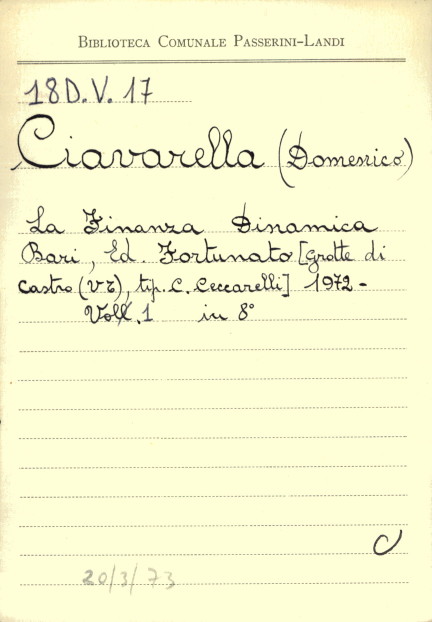 BIBLIOTECA COMUNALE PASSERINI-LANDI
18D.V. 17
Ciavarella (Domenico)
La Finanza Dinamica
Bari, Ed. Fortunato [Grotte di
Castro (VT), tip. C. Ceccarelli] 1972-
Voll. 1 in 8°
C
20/3/73